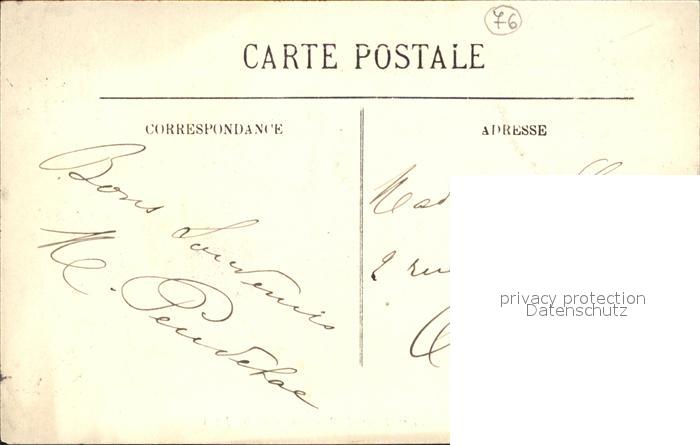 76
CARTE POSTALE
CORRESPONDANCE
ADRESSE
Bons
Souvenirs
Mad
2 rue
privacy protection
Datenschutz